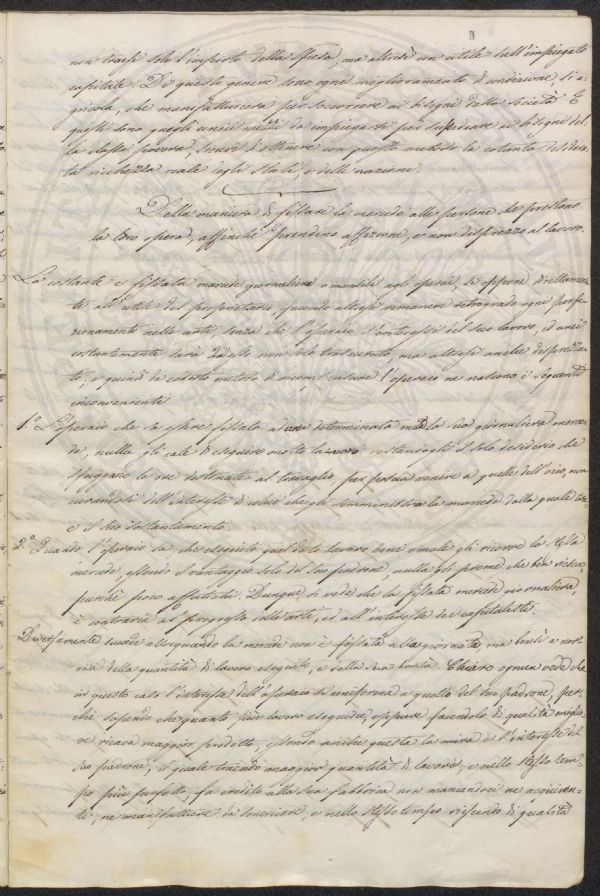 5
non trarli solo l'importo della spesa, ma altresì un utile sull'impiegato
capitale. Di questo genere sono ogni miglioramento di condizione sì a-
gricola, che manufatturiera per soccorrere ai bisogni della società. E
questi sono quegli unici mezzi da impiegarsi per supplire ai bisogni del-
la classe povera, sicuri di ottenere con questo metodo la cotanto desidera-
ta ricchezza reale degli Stati, e delle nazioni.
Della maniera di fissare la mercede alle persone che prestano
la loro opera, affinchè prendino affezione, e non disprezzo al lavoro.
La costante e fissata mercede giornaliera o mensile agli operai, si oppone direttamen-
te all'utile del proprietario, facendo altresì rimanere retrogrado ogni perfe-
zionamento nelle arti, senza che l'operaio s'interessi del suo lavoro, ed anzi
costantemente sarà da esso non solo trascurato, ma altresì anche disprezza-
to, e quindi da codesto metodo di ricompensare l'operaio ne nascono i seguenti
inconvenienti.
1.° L'operaio che sa essere fissata ad una determinata moneta la sua giornaliera merce-
de, nulla gli cale di eseguire molto lavoro restandogli il solo desiderio che
fuggano le ore destinate al travaglio, per poscia venire a quelle dell'ozio, non
curandosi dell'interesse di colui che gli somministra la mercede dalla quale trae
il suo sostentamento.
2.° Quando l'operaio sa che eseguito quel dato lavoro bene o male gli ricorre la stessa
mercede, essendo svantaggio solo del suo padrone, nulla gli preme che ben riesca,
purchè poco affatichi. Dunque si vede che la fissata mercede giornaliera,
è contraria al progresso delle arti, ed all'interesse dei capitalisti.
Diversamente succede allorquando la mercede non è fissata alla giornata, ma bensì a nor-
ma della quantità di lavoro eseguito, e della sua bontà. Chiaro ognun vede che
in questo caso l'interesse dell'operaio si uniforma a quello del suo padrone, per-
chè sapendo che quanto più lavoro eseguisce, oppure facendolo di qualità miglio-
re ricava maggior prodotto, essendo anche questa la mira e l'interesse del
suo padrone, il quale traendo maggior quantità di lavoro, e nello stesso tem-
po più perfetto, fa credito alla sua fabbrica non mancandoci ne acquiren-
ti, ne manifatture da smerciare, e nello stesso tempo riescendo di qualità